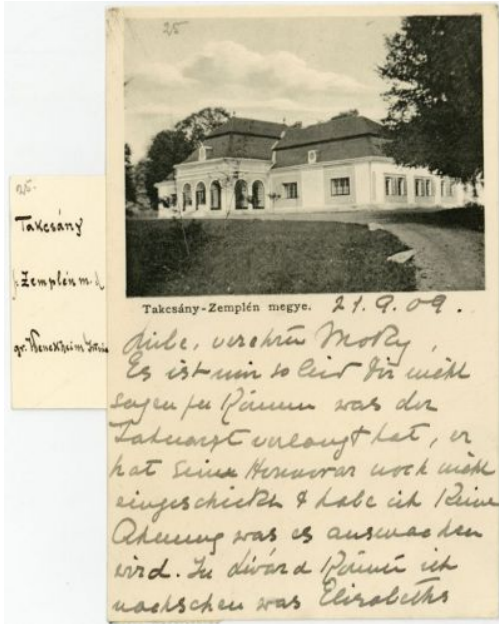 25.
Takcsány
Zemplén m.
gr. Wenckheim
25
Takcsány-Zemplén megye. 21.9.09.
Liebe, verehrte
Es ist mir so leid Dir nicht
sagen zu können was der
Zahnarzt verlangt hat, er
hat seine Honorar noch nicht
eingeschickt & habe ich keine
Ahnung was es ausmachen
wird. In könnte ich
nachsehen was Elisabeths